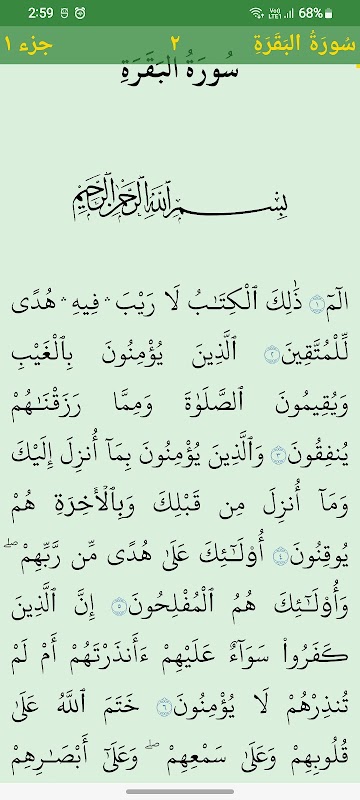 2:59 68%
سُورَةُ البَقَرَةِ ٢ جزء ١
سُورَةُ البَقَرَةِ
بِسْمِ ٱللَّهِ ٱلرَّحْمَٰنِ ٱلرَّحِيمِ
الٓمٓ ١ ذَٰلِكَ ٱلْكِتَـٰبُ لَا رَيْبَ ۛ فِيهِ ۛ هُدًى
لِّلْمُتَّقِينَ ٢ ٱلَّذِينَ يُؤْمِنُونَ بِٱلْغَيْبِ
وَيُقِيمُونَ ٱلصَّلَوٰةَ وَمِمَّا رَزَقْنَـٰهُمْ
يُنفِقُونَ ٣ وَٱلَّذِينَ يُؤْمِنُونَ بِمَآ أُنزِلَ إِلَيْكَ
وَمَآ أُنزِلَ مِن قَبْلِكَ وَبِٱلْأَخِرَةِ هُمْ
يُوقِنُونَ ٤ أُو۟لَـٰٓئِكَ عَلَىٰ هُدًى مِّن رَّبِّهِمْ ۖ
وَأُو۟لَـٰٓئِكَ هُمُ ٱلْمُفْلِحُونَ ٥ إِنَّ ٱلَّذِينَ
كَفَرُوا۟ سَوَآءٌ عَلَيْهِمْ ءَأَنذَرْتَهُمْ أَمْ لَمْ
تُنذِرْهُمْ لَا يُؤْمِنُونَ ٦ خَتَمَ ٱللَّهُ عَلَىٰ
قُلُوبِهِمْ وَعَلَىٰ سَمْعِهِمْ ۖ وَعَلَىٰٓ أَبْصَـٰرِهِمْ